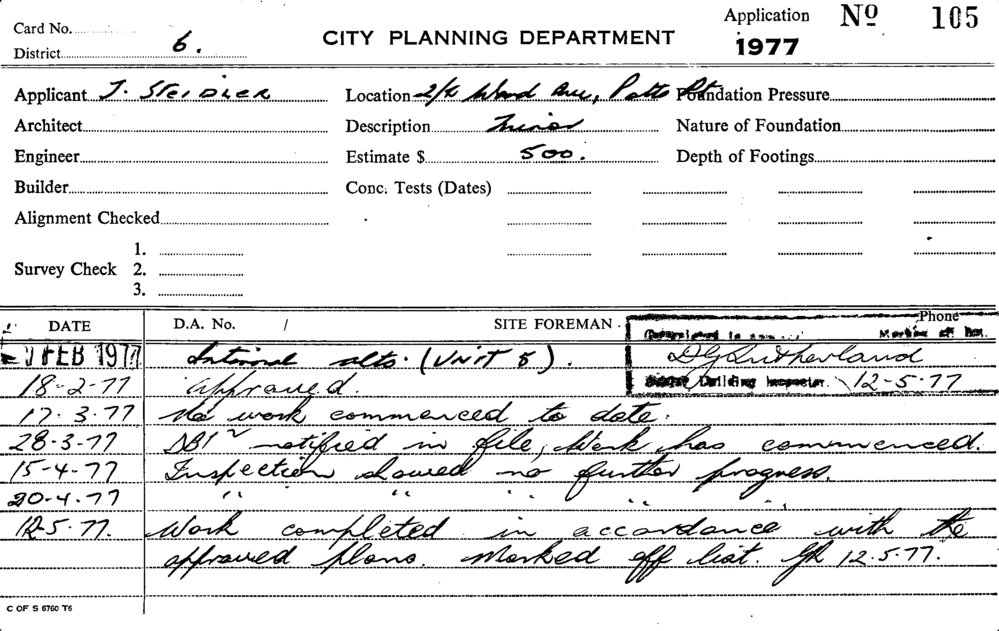 Card No.
District 6.
CITY PLANNING DEPARTMENT
Application No 105
1977
Applicant J. STEIDLER Location 2/4 Ward Ave, Potts Pt Foundation Pressure
Architect Description Minor Nature of Foundation
Engineer Estimate $ 500. Depth of Footings
Builder Conc. Tests (Dates)
Alignment Checked
Survey Check 1.
2.
3.
DATE D.A. No. / SITE FOREMAN Phone
1 FEB 1977 Internal alts. (UNIT 5).
D G Sutherland
Building Inspector 12-5-77
18-2-77 Approved.
17.3.77 No work commenced to date.
28-3-77 notified in file, Work has commenced.
15-4-77 Inspection showed no further progress.
20-4-77 " " " "
12-5-77. Work completed in accordance with the
approved plans. Marked off list. 12.5.77.
C OF S 6760 T6